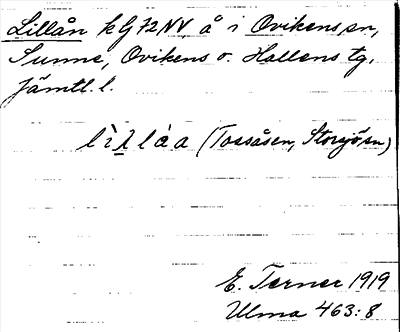 Lillån kG72NV å i Ovikens sn,
Sunne, Ovikens o. Hallens tg,
Jämtl. l.
(Tossåsen, Storsjön)
E. Terner 1919
Ulma 463:8